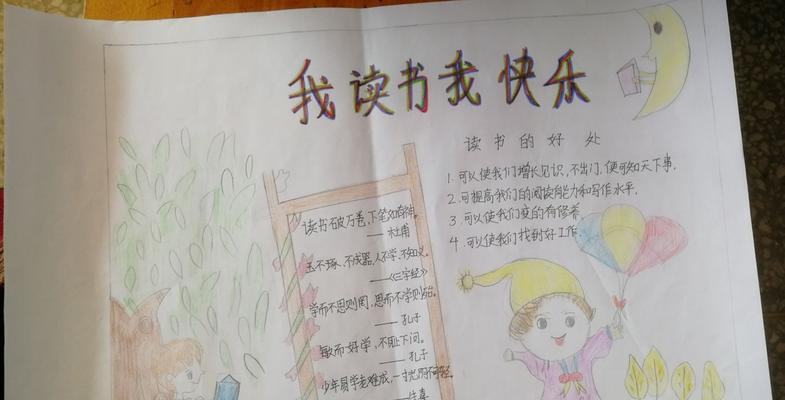 我读书我快乐
读书的好处
1.可以使我们增长见识,不出门,便可知天下事.
2.可提高我们的阅读能力和写作水平.
3.可以使我们变的有修养.
4.可以使我们找到好工作.
读书破万卷,下笔如有神.
——杜甫
玉不琢、不成器,人不学、不知义.
——《三字经》
学而不思则罔,思而不学则殆.
——孔子
敏而好学,不耻下问.
——孔子
少年易学老难成,一寸光阴不可轻.
——朱熹